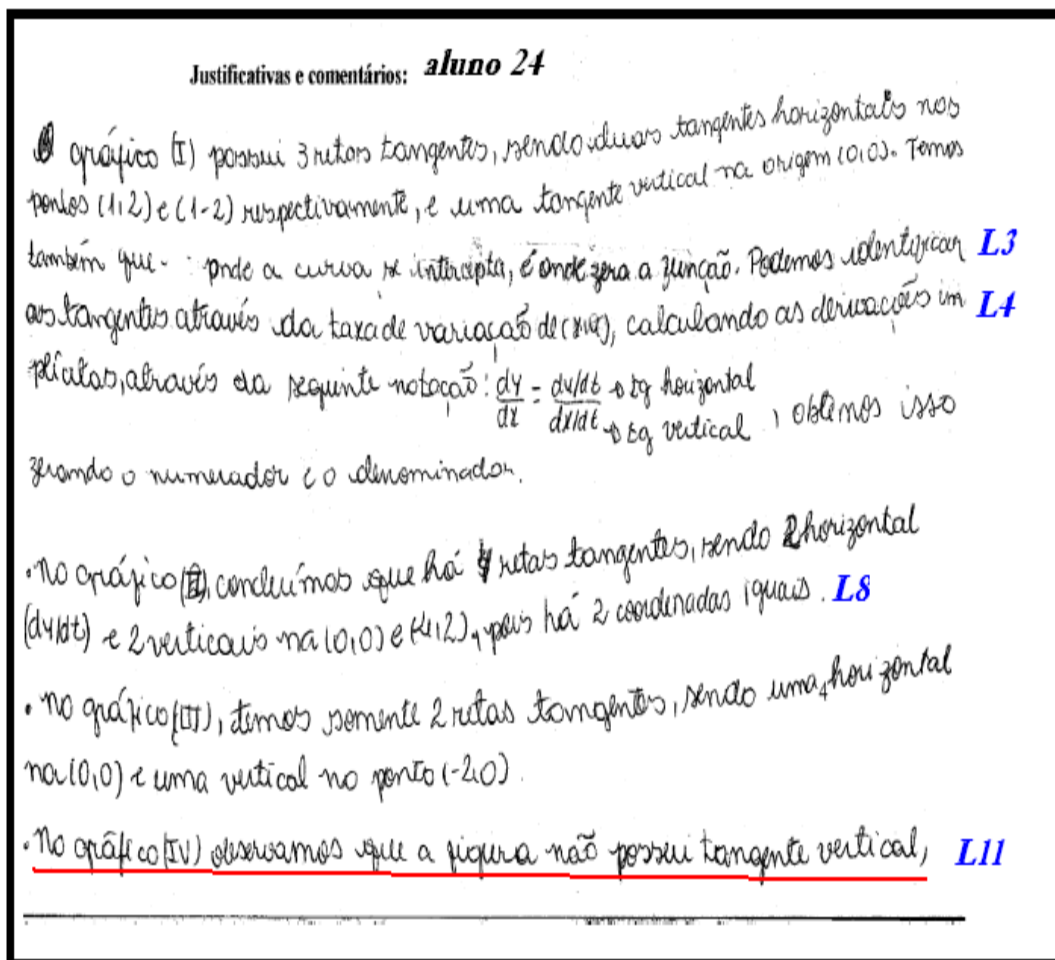 Justificativas e comentários: aluno 24
O gráfico (I) possui 3 retas tangentes, sendo duas tangentes horizontais nos
pontos (1,2) e (1-2) respectivamente, e uma tangente vertical na origem (0,0). Temos
também que onde a curva se intercepta, é onde zera a função. Podemos identificar L3
as tangentes através da taxa de variação de (x,y), calculando as derivações im L4
plícitas, através da seguinte notação: dy/dx = dy/dt → tg horizontal
dx/dt → tg vertical , obtemos isso
zerando o numerador e o denominador.
• No gráfico (II), concluímos que há 4 retas tangentes, sendo 2 horizontal
(dy/dt) e 2 verticais na (0,0) e (4,2), pois há 2 coordenadas iguais. L8
• No gráfico (III), temos somente 2 retas tangentes, sendo uma horizontal
na (0,0) e uma vertical no ponto (-2,0).
• No gráfico (IV) observamos que a figura não possui tangente vertical, L11